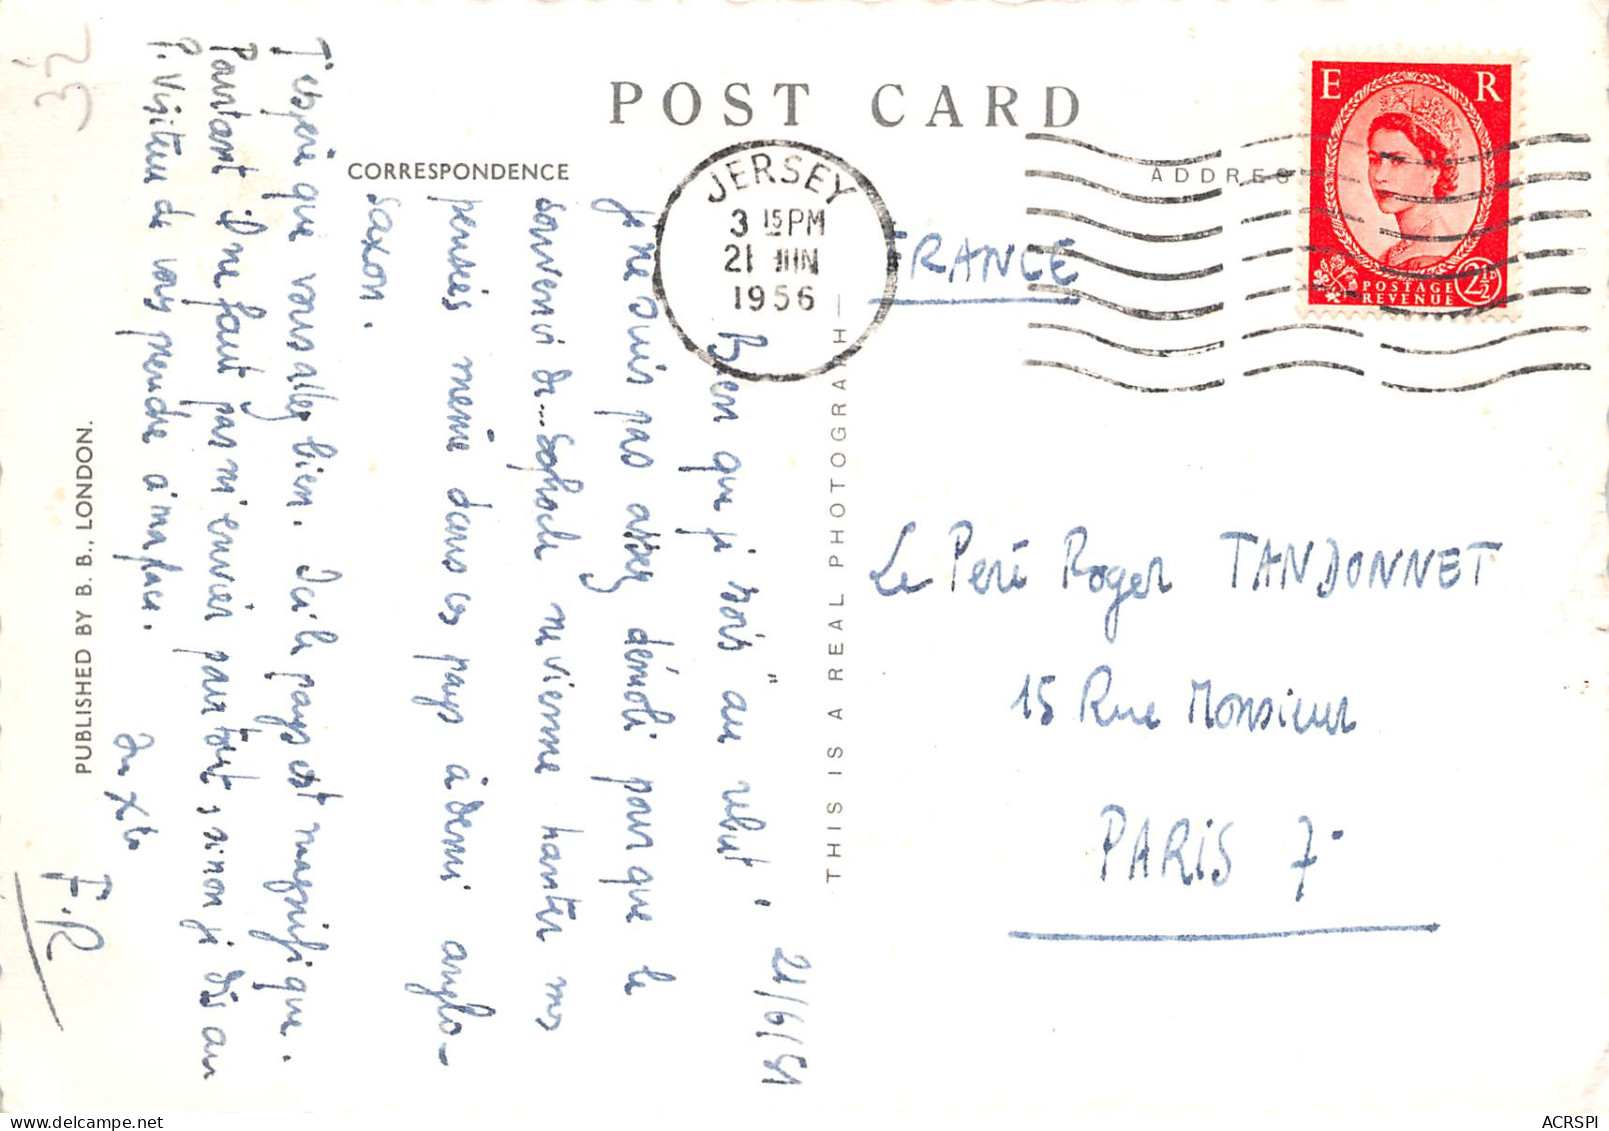 POST CARD
CORRESPONDENCE
ADDRES
JERSEY
3 15 PM
21 JUN
1956
E R
POSTAGE
REVENUE
2½D
FRANCE
Le Père Roger TANDONNET
15 Rue Monsieur
PARIS 7
21/6/51
Bien que je sois "au rebut",
je ne suis pas assez démoli pour que le
souvenir de... Sophocle ne vienne hanter mes
pensées même dans ces pays à demi anglo-
saxon.
J'espère que vous allez bien. Ici le pays est magnifique.
Pourtant il ne faut pas m'envier pour tout, sinon je dis au
P. Visiteur de vous prendre à ma place.
In Xto
F.R
THIS IS A REAL PHOTOGRAPH
PUBLISHED BY B. B., LONDON.
32
ACRSPI